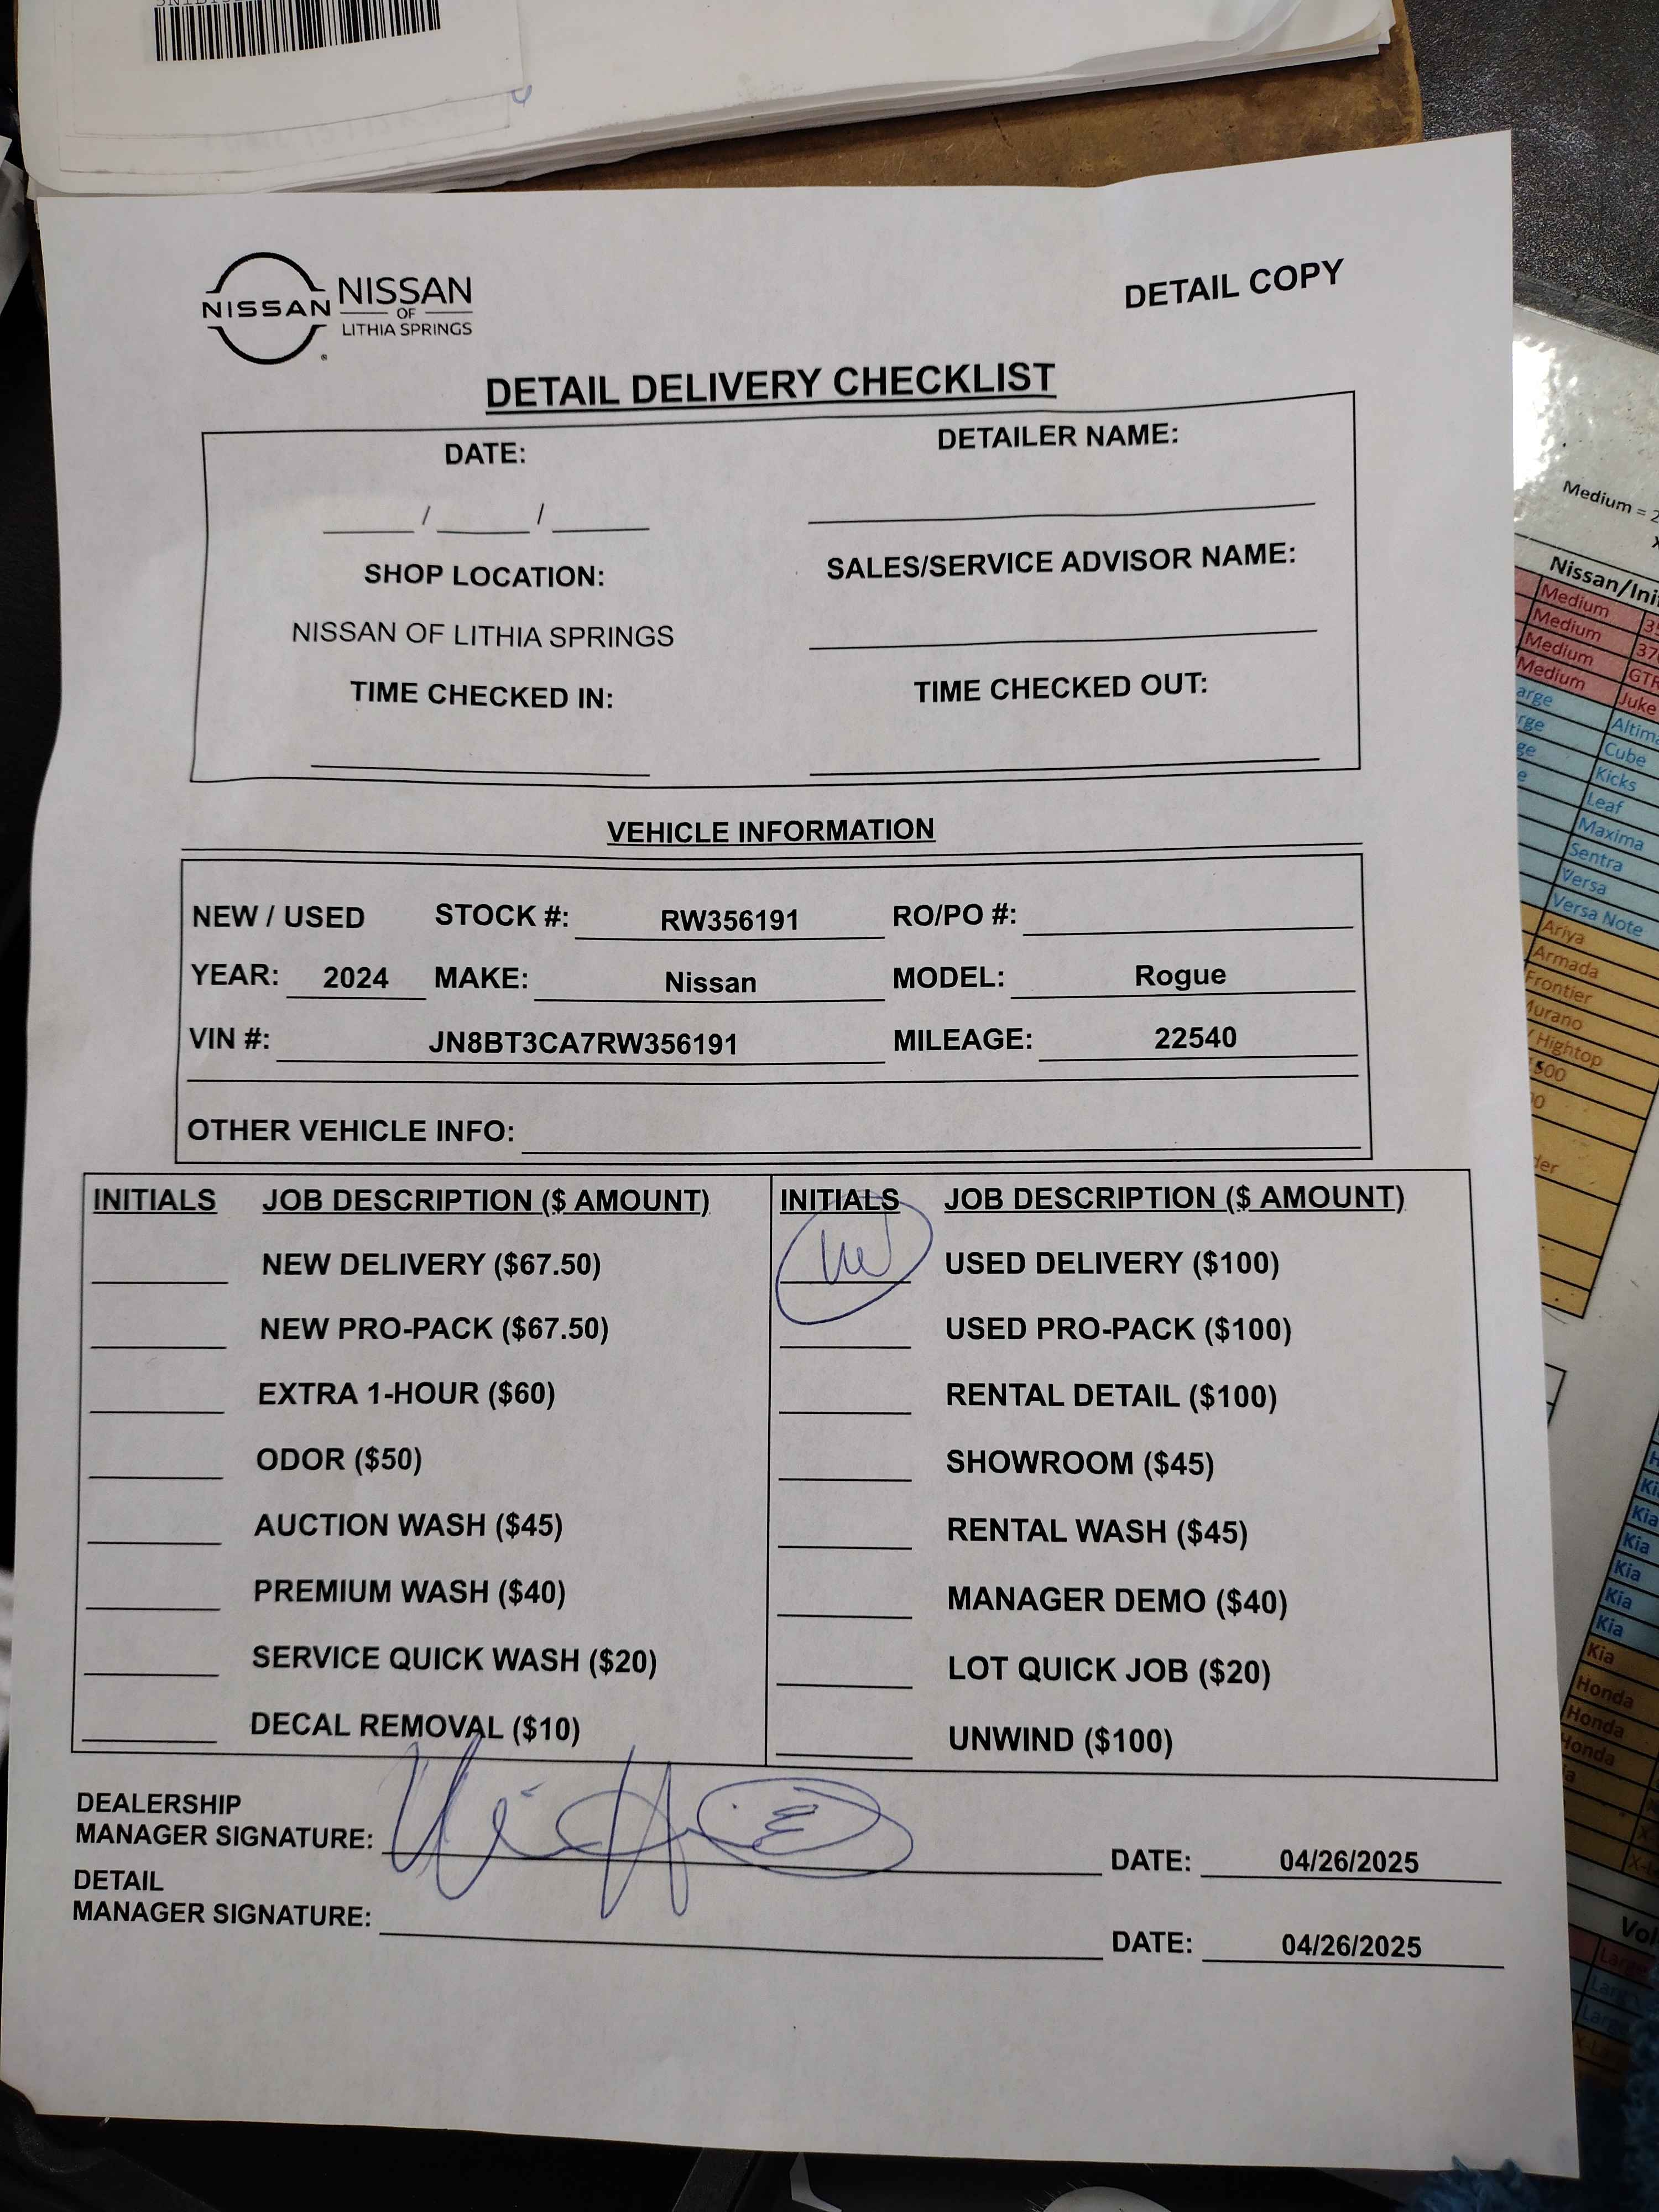 NISSAN
NISSAN
OF
LITHIA SPRINGS
DETAIL COPY
DETAIL DELIVERY CHECKLIST
DATE:
DETAILER NAME:
/ /
SHOP LOCATION:
SALES/SERVICE ADVISOR NAME:
NISSAN OF LITHIA SPRINGS
TIME CHECKED IN:
TIME CHECKED OUT:
VEHICLE INFORMATION
NEW / USED STOCK #: RW356191 RO/PO #:
YEAR: 2024 MAKE: Nissan MODEL: Rogue
VIN #: JN8BT3CA7RW356191 MILEAGE: 22540
OTHER VEHICLE INFO:
INITIALS JOB DESCRIPTION ($ AMOUNT) INITIALS JOB DESCRIPTION ($ AMOUNT)
NEW DELIVERY ($67.50) USED DELIVERY ($100)
NEW PRO-PACK ($67.50) USED PRO-PACK ($100)
EXTRA 1-HOUR ($60) RENTAL DETAIL ($100)
ODOR ($50) SHOWROOM ($45)
AUCTION WASH ($45) RENTAL WASH ($45)
PREMIUM WASH ($40) MANAGER DEMO ($40)
SERVICE QUICK WASH ($20) LOT QUICK JOB ($20)
DECAL REMOVAL ($10) UNWIND ($100)
DEALERSHIP
MANAGER SIGNATURE: DATE: 04/26/2025
DETAIL
MANAGER SIGNATURE: DATE: 04/26/2025
Medium = 2
Nissan/Ini
Medium
Medium
Medium GTR
Medium Juke
Altima
Cube
Kicks
Leaf
Maxima
Sentra
Versa
Versa Note
Ariya
Armada
Frontier
Murano
Hightop
Kia
Kia
Kia
Kia
Kia
Kia
Honda
Honda
Honda